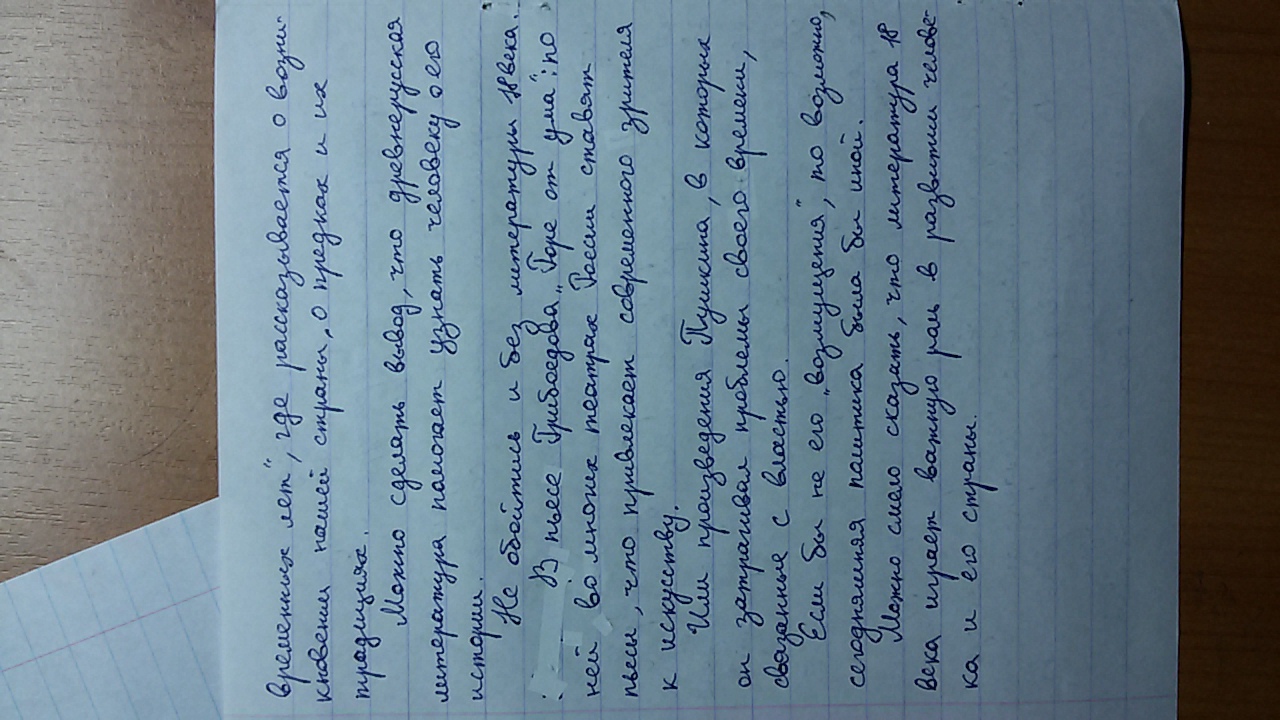 временных лет", где рассказывается о возни-
кновении нашей страны, о предках и их
традициях.
Можно сделать вывод, что древнерусская
литература помогает узнать человеку о его
истории.
Не обойтись и без литературы 18 века.
В пьесе Грибоедова „Горе от ума": по
ней во многих театрах России ставят
пьесы, что привлекает современного зрителя
к искуству.
Или произведения Пушкина, в которых
он затрагивал проблемы своего времени,
связанные с властью.
Если бы не его „возмущения", то возможно,
сегодняшняя политика была бы иной.
Можно смело сказать, что литература 18
века играет важную роль в развитии челове-
ка и его страны.